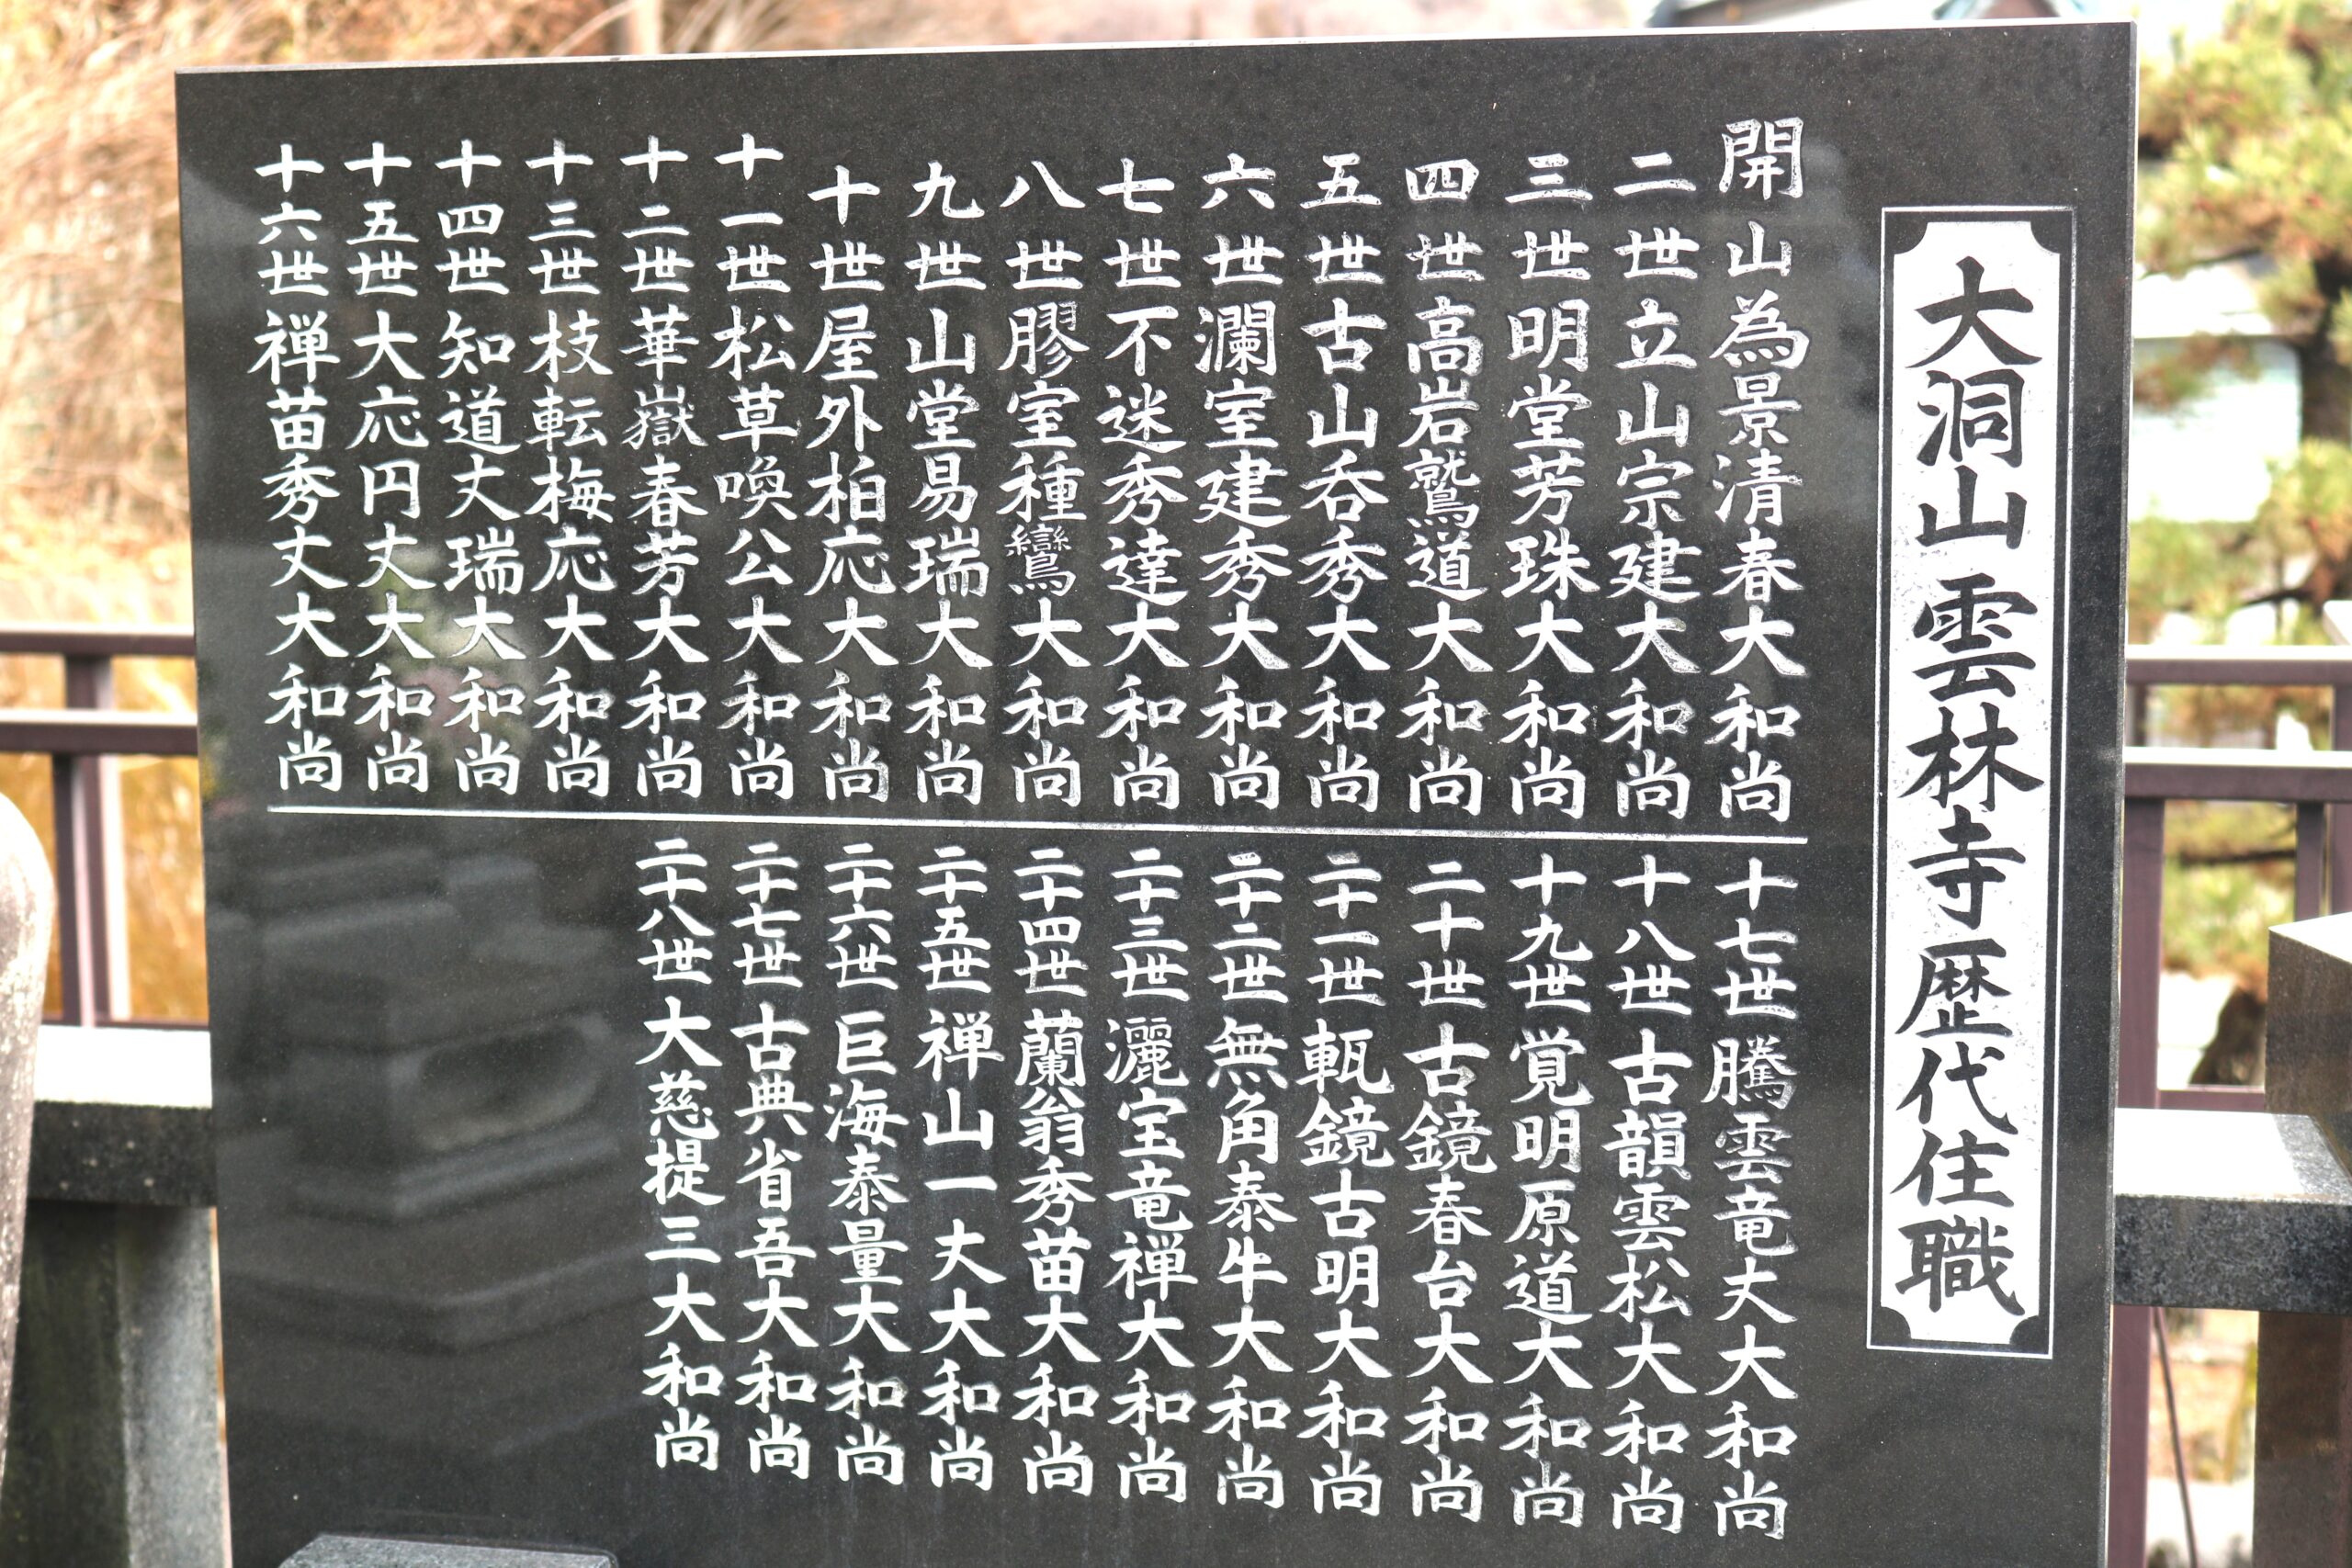 大洞山雲林寺歴代住職
開山為景清春大和尚
二世立山宗建大和尚
三世明堂芳珠大和尚
四世高岩鷲道大和尚
五世古山呑秀大和尚
六世瀾室建秀大和尚
七世不迷秀達大和尚
八世膠室種鸞大和尚
九世山堂易瑞大和尚
十世屋外柏応大和尚
十一世松草喚公大和尚
十二世華嶽春芳大和尚
十三世枝転梅応大和尚
十四世知道丈瑞大和尚
十五世大応円丈大和尚
十六世禅苗秀丈大和尚
十七世騰雲竜丈大和尚
十八世古韻雲松大和尚
十九世覚明原道大和尚
二十世古鏡春台大和尚
二十一世甎鏡古明大和尚
二十二世無角泰牛大和尚
二十三世灑宝竜禅大和尚
二十四世蘭翁秀苗大和尚
二十五世禅山一丈大和尚
二十六世巨海泰量大和尚
二十七世古典省吾大和尚
二十八世大慈提三大和尚